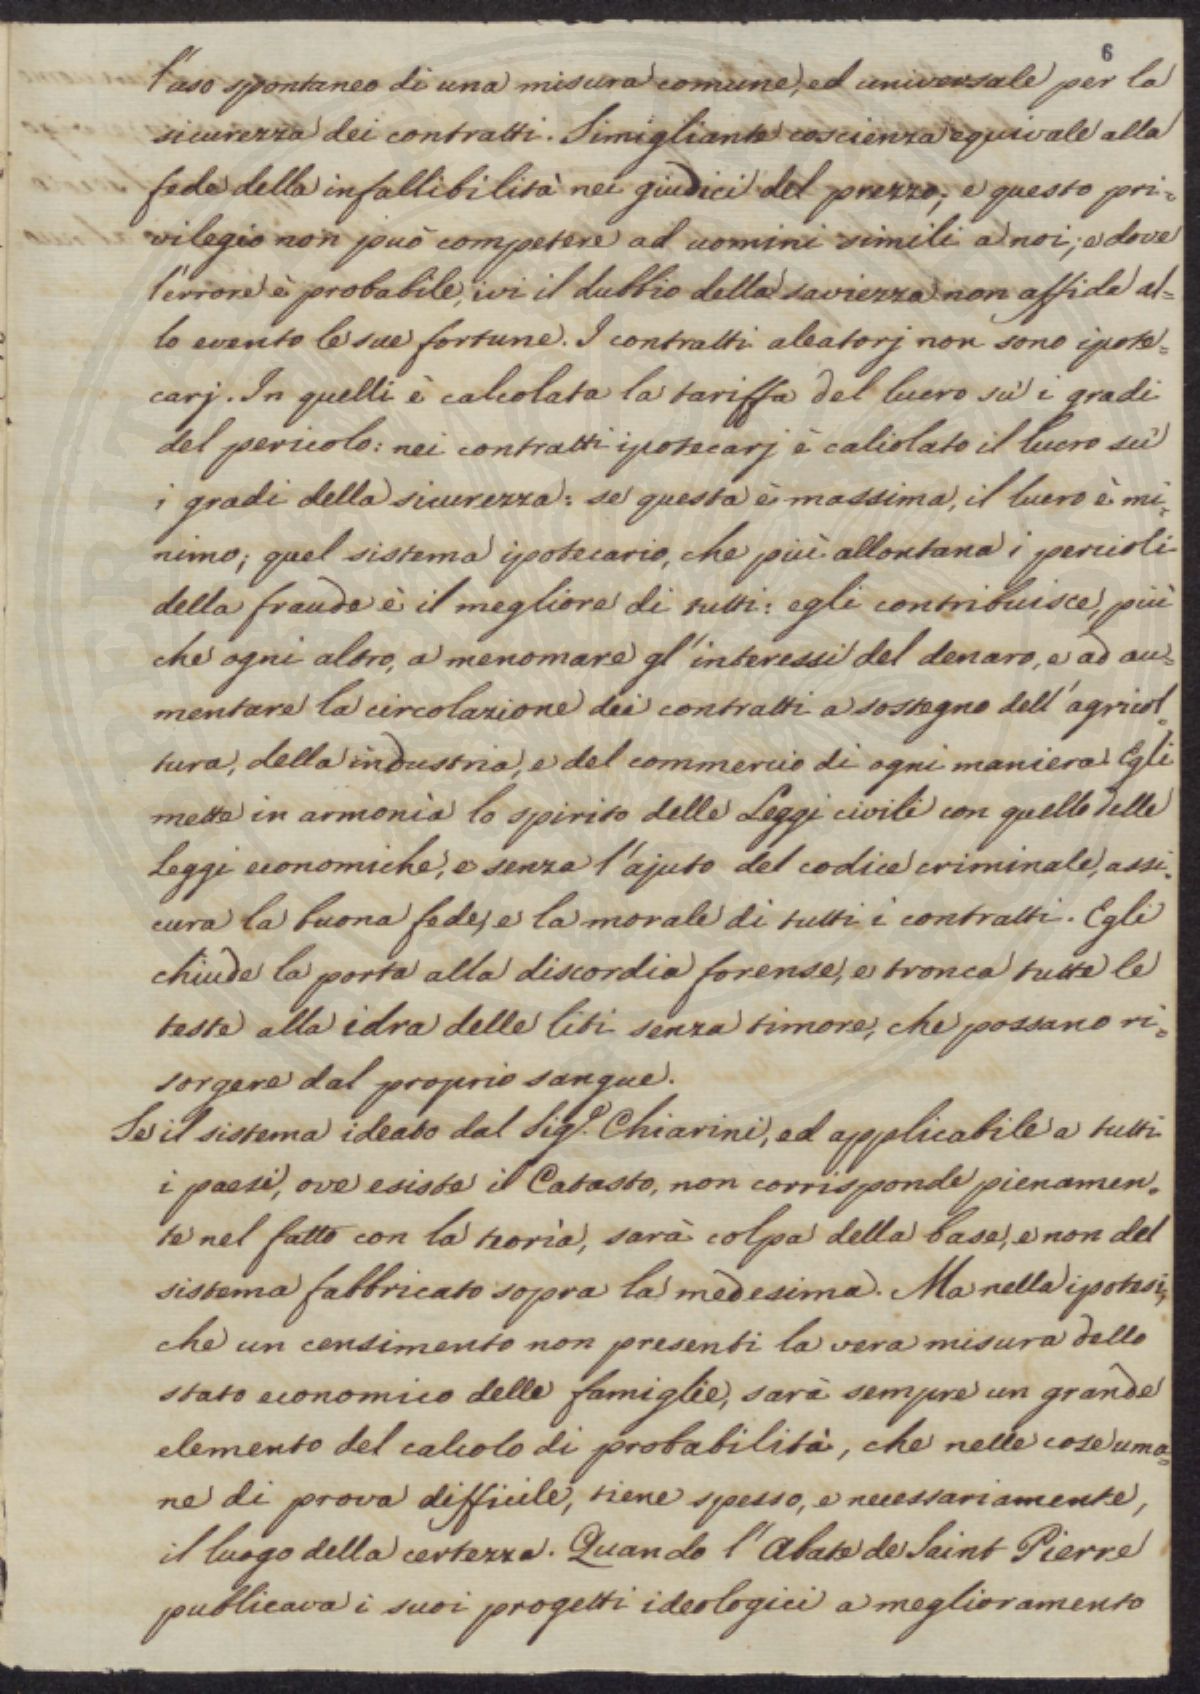 6
l'uso spontaneo di una misura comune, ed universale per la
sicurezza dei contratti. Simigliante coscienza equivale alla
fede della infallibilità nei giudici del prezzo; e questo pri=
vilegio non può competere ad uomini simili a noi; e dove
l'errore è probabile, ivi il dubbio della saviezza non affida al=
lo evento le sue fortune. I contratti aleatorj non sono ipote=
carj. In quelli è calcolata la tariffa del lucro sù i gradi
del pericolo: nei contratti ipotecarj è calcolato il lucro sù
i gradi della sicurezza: se questa è massima, il lucro è mi=
nimo; quel sistema ipotecario, che più allontana i pericoli
della fraude è il megliore di tutti: egli contribuisce, più
che ogni altro, a menomare gl'interessi del denaro, e ad au=
mentare la circolazione dei contratti a sostegno dell'agricol=
tura, della industria, e del commercio di ogni maniera. Egli
mette in armonìa lo spirito delle Leggi civili con quello delle
Leggi economiche, e senza l'ajuto del codice criminale, assi=
cura la buona fede, e la morale di tutti i contratti. Egli
chiude la porta alla discordia forense, e tronca tutte le
teste alla idra delle liti senza timore, che possano ri=
sorgere dal proprio sangue.
Se il sistema ideato dal Sig.r Chiarini, ed applicabile a tutti
i paesi, ove esiste il Catasto, non corrisponde pienamen=
te nel fatto con la teorìa, sarà colpa della base, e non del
sistema fabbricato sopra la medesima. Ma nella ipotesi,
che un censimento non presenti la vera misura dello
stato economico delle famiglie, sarà sempre un grande
elemento del calcolo di probabilità, che nelle cose uma=
ne di prova difficile, tiene spesso, e necessariamente,
il luogo della certezza. Quando l'Abate de Saint Pierre
publicava i suoi progetti ideologici a meglioramento